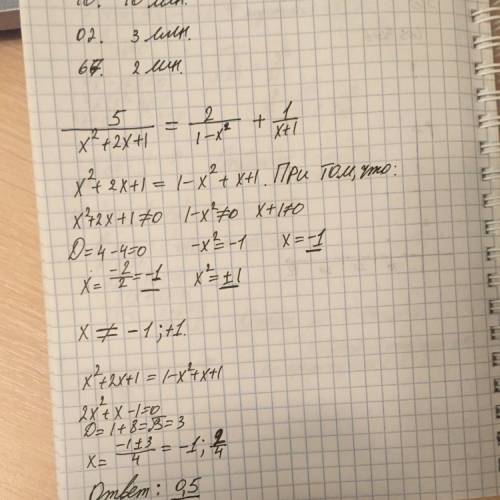 10. 10 мин.
02. 3 мин.
67. 2 мин.
5/(x²+2x+1) = 2/(1-x²) + 1/(x+1)
x²+2x+1 = 1-x²+x+1. При том, что:
x²+2x+1≠0 1-x²≠0 x+1≠0
D=4-4=0 -x²=-1 x=-1
x=-2/2=-1 x²=±1
x ≠ -1;+1.
x²+2x+1=1-x²+x+1
2x²+x-1=0
D=1+8=√9=3
x=(-1±3)/4=-1; 2/4
Ответ: 0,5